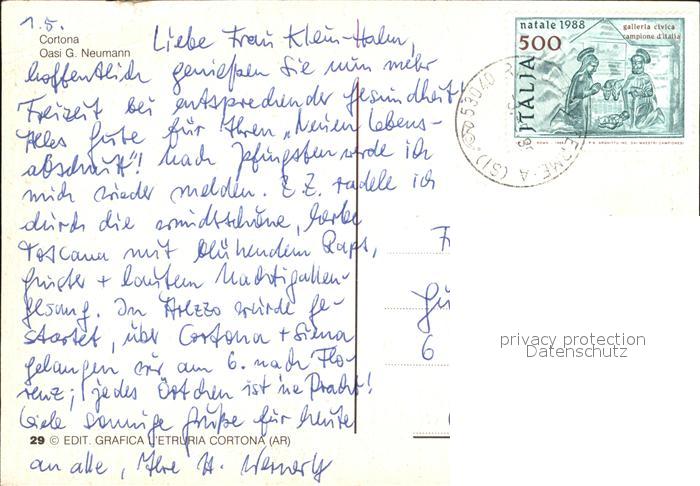 1.5.
Cortona
Oasi G. Neumann
Liebe Frau Klein-Halm,
hoffentlich genießen Sie nun mehr
Freizeit bei entsprechender Gesundheit
Alles Gute für Ihren „Neuen Lebens-
abschnitt"! Nach Pfingsten werde ich
mich wieder melden. Z.Z. radele ich
durch die wunderschöne, herbe
Toscana mit blühendem Raps,
Ginster + lautem Nachtigallen-
gesang. In Arezzo wurde ge-
startet, über Cortona + Siena
gelangen wir am 6. nach Flo-
renz; jedes Örtchen ist 'ne Pracht!
Viele sonnige Grüße für heute
29 © EDIT. GRAFICA L'ETRURIA CORTONA (AR)
an alle, Ihre H.
natale 1988
galleria civica
campione d'italia
500
ITALIA
53040
TERME-A (SI)
6
privacy protection
Datenschutz